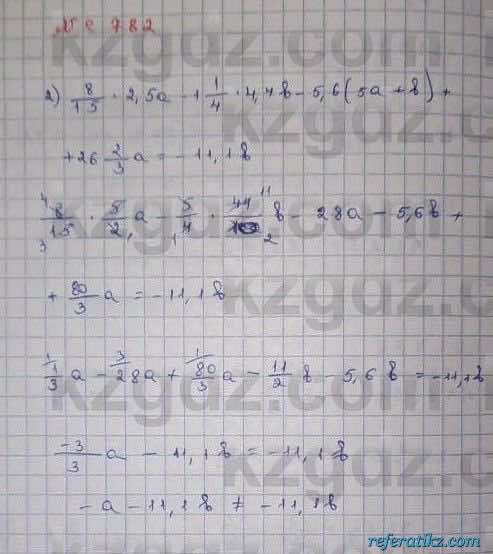 № 782
2) 8/15 · 2,5a - 1 1/4 · 4,4b - 5,6(5a + b) +
+ 26 2/3 a = -11,1b
4 8/15 3 · 5/2 1 a - 5/4 1 · 44 11/10 2 b - 28a - 5,6b +
+ 80/3 a = -11,1b
1 1/3 a - 3 28a + 1 80/3 a - 11/2 b - 5,6b = -11,1b
-3/3 a - 11,1b = -11,1b
-a - 11,1b ≠ -11,1b
kzgdz.com
referatikz.com